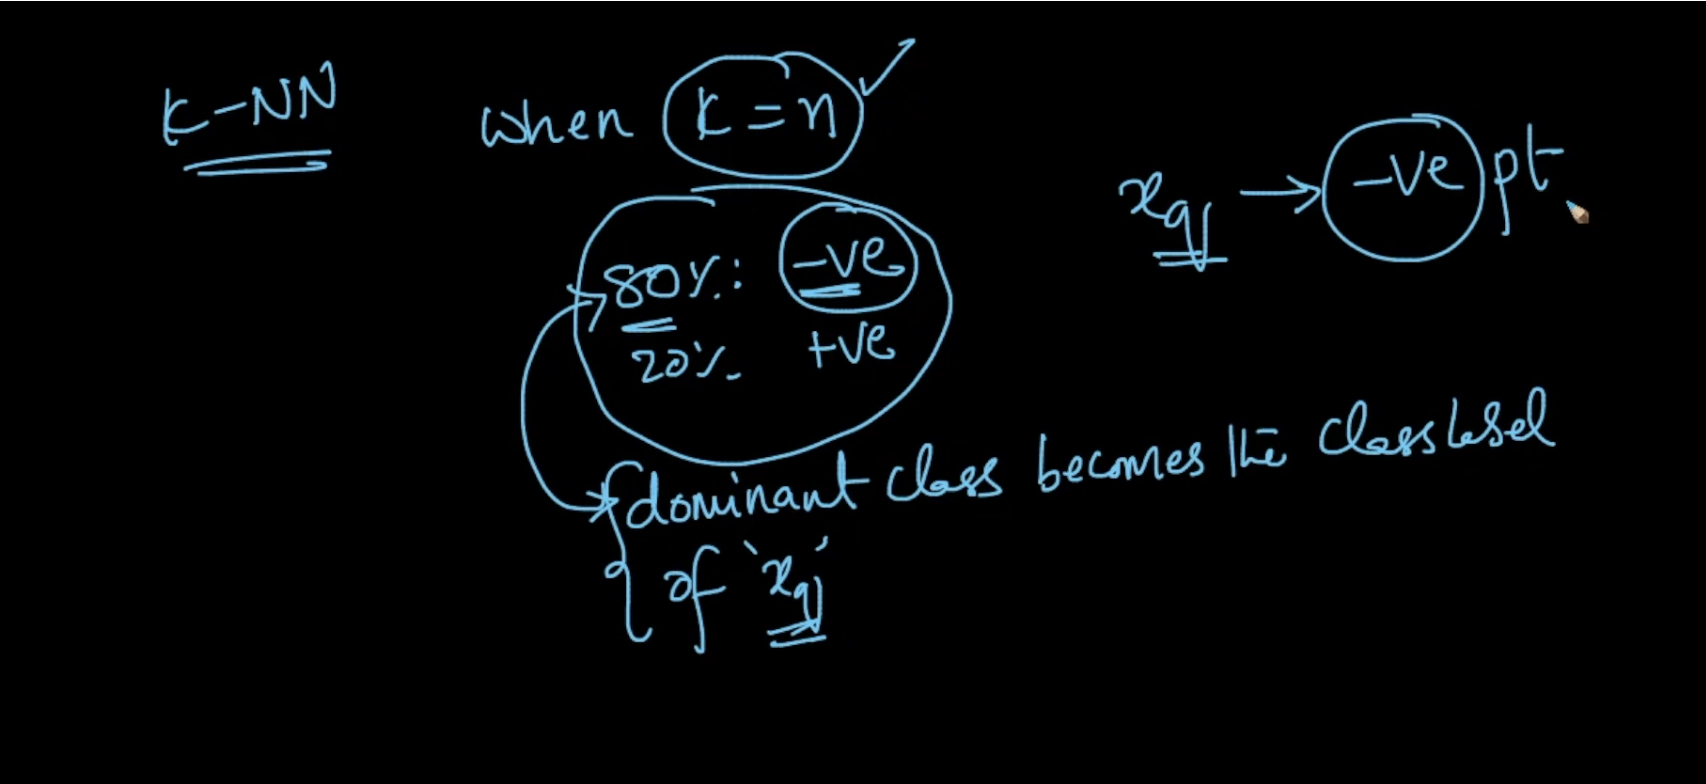 K-NN when K=n
xq → -ve pt
80%: -ve
20%. +ve
dominant class becomes the class label
of 'xq'